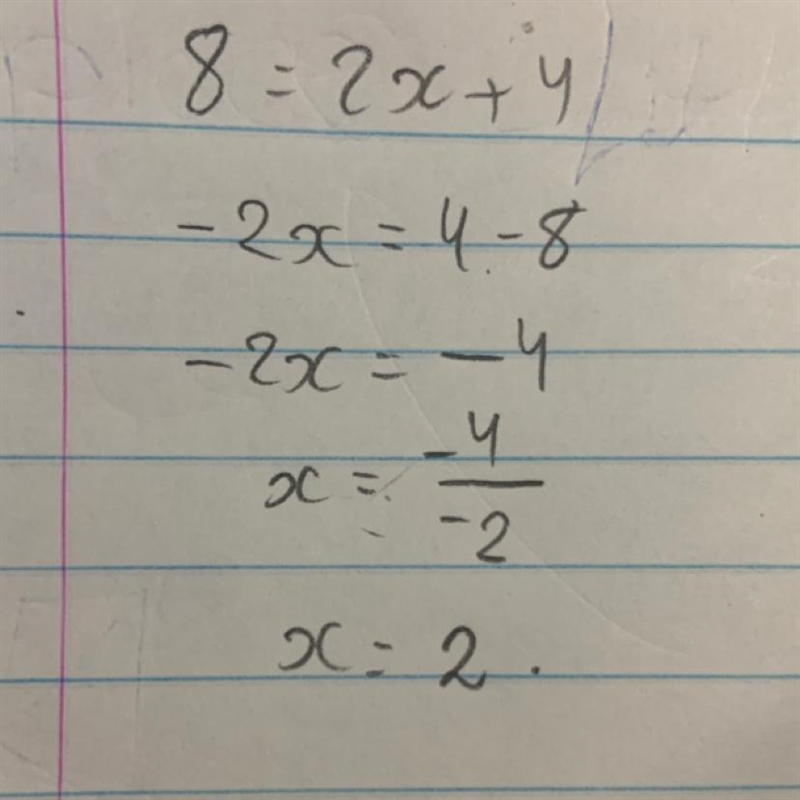 8 = 2x + 4
-2x = 4 - 8
-2x = -4
x = -4/-2
x = 2.